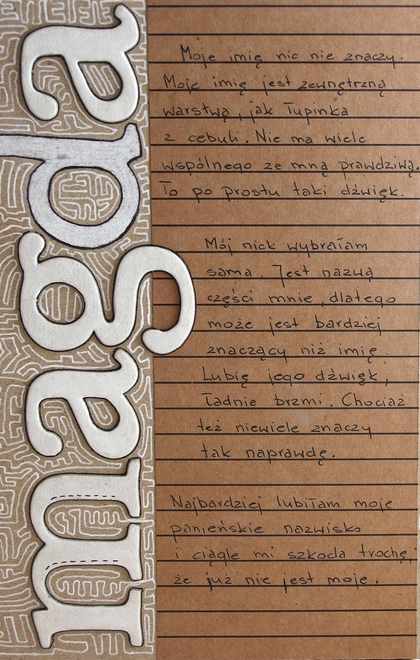 magda
Moje imię nic nie znaczy.
Moje imię jest zewnętrzną
warstwą, jak łupinka
z cebuli. Nie ma wiele
wspólnego ze mną prawdziwą.
To po prostu taki dźwięk.
Mój nick wybrałam
sama. Jest nazwą
części mnie, dlatego
może jest bardziej
znaczący niż imię.
Lubię jego dźwięk,
ładnie brzmi. Chociaż
też niewiele znaczy
tak naprawdę.
Najbardziej lubiłam moje
panieńskie nazwisko
i ciągle mi szkoda trochę,
że już nie jest moje.